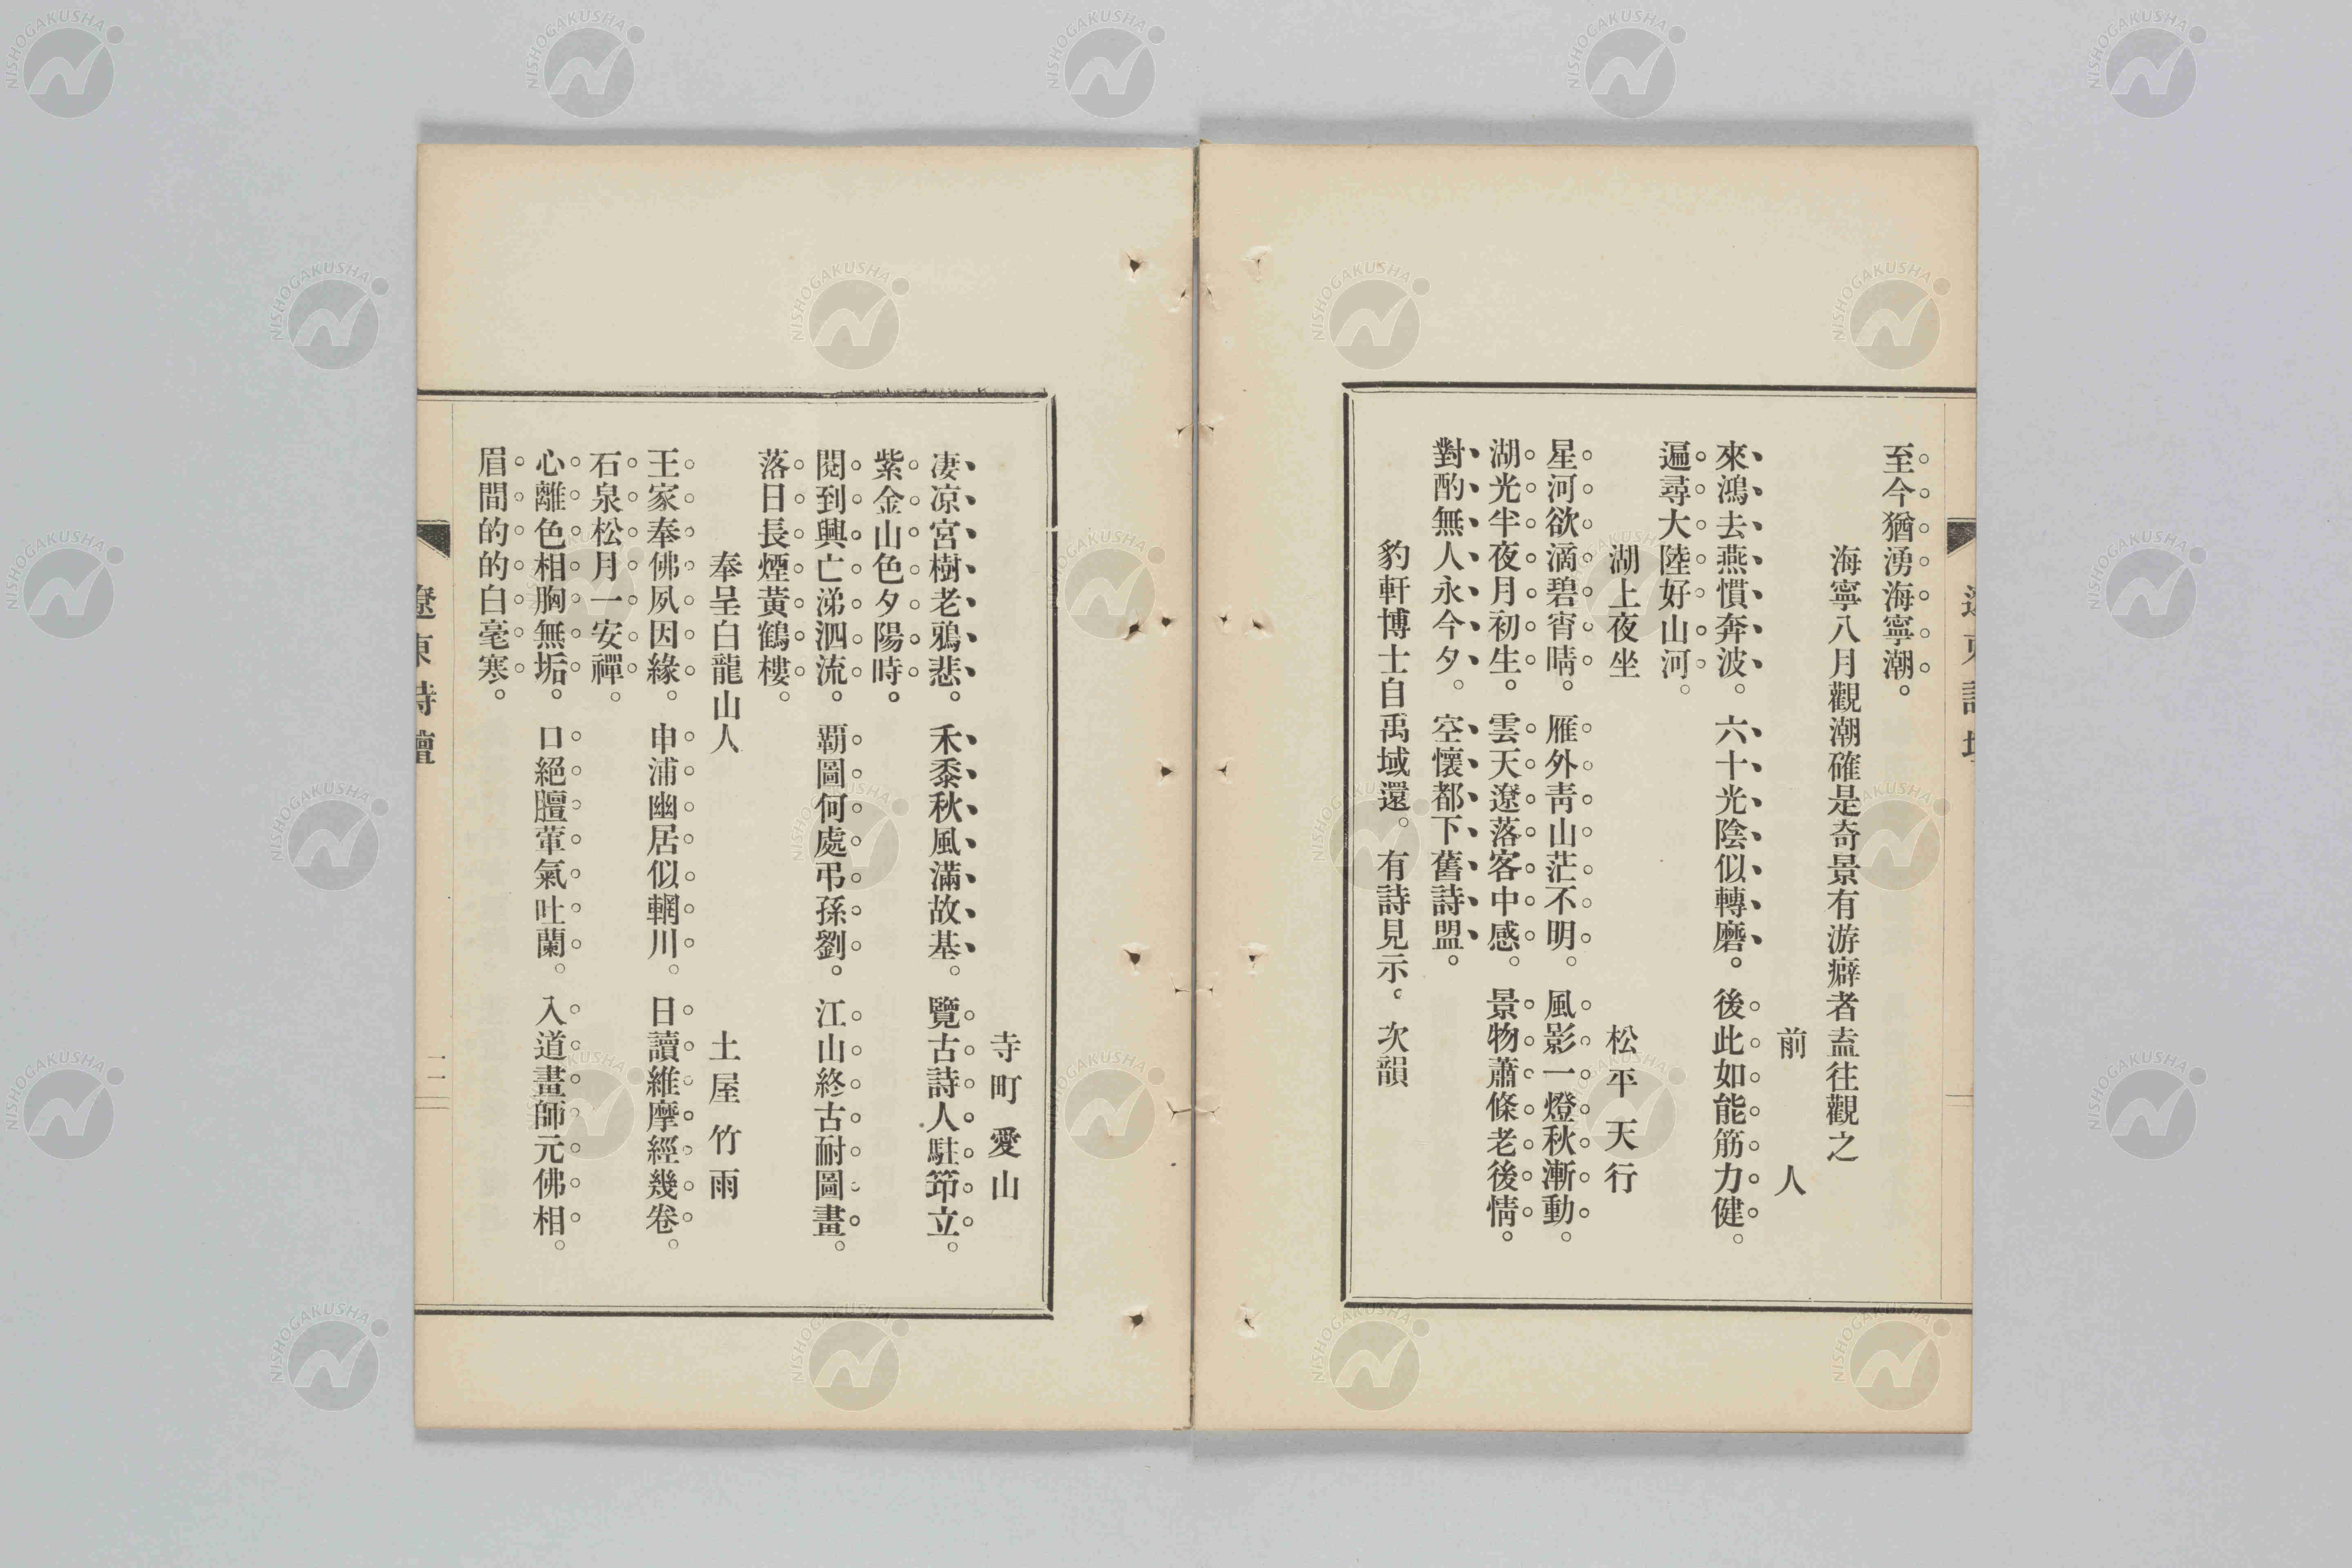 至今猶湧海寧潮。
海寧八月觀潮確是奇景有游癖者盍往觀之
前人
來鴻去燕慣奔波。六十光陰似轉磨。後此如能筋力健。
遍尋大陸好山河。
湖上夜坐 松平天行
星河欲滴碧宵晴。雁外靑山茫不明。風影一燈秋漸動。
湖光半夜月初生。雲天遼落客中感。景物蕭條老後情。
對酌無人永今夕。空懷都下舊詩盟。
豹軒博士自禹域還。有詩見示。次韻
寺町愛山
凄凉宮樹老鴉悲。禾黍秋風滿故基。覽古詩人駐笻立。
紫金山色夕陽時。
閱到興亡涕泗流。覇圖何處弔孫劉。江山終古耐圖畫。
落日長煙黃鶴樓。
奉呈白龍山人 土屋竹雨
王家奉佛夙因緣。申浦幽居似輞川。日讀維摩經幾卷。
石泉松月一安禪。
心離色相胸無垢。口絕膻葷氣吐蘭。入道畫師元佛相。
眉間的的白毫寒。
遼東詩壇
二
NISHOGAKUSHA